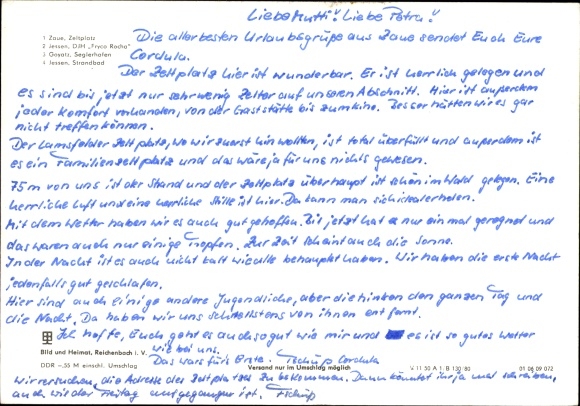 Liebe Mutti! Liebe Petra!
1 Zaue, Zeltplatz
2 Jessen, DJH "Fryco Rocha"
3 Goyatz, Seglerhafen
4 Jessen, Strandbad
Die allerbesten Urlaubsgrüße aus Zaue sendet Euch Eure
Cordula.
Der Zeltplatz hier ist wunderbar. Er ist herrlich gelegen und
es sind bis jetzt nur sehr wenig Zelter auf unseren Abschnitt. Hier ist außerdem
jeder Komfort vorhanden, von der Gaststätte bis zum Kino. Besser hätten wir es gar
nicht treffen können.
Der Lamsfelder Zeltplatz, wo wir zuerst hin wollten, ist total überfüllt und außerdem ist
es ein Familienzeltplatz und das wäre ja für uns nichts gewesen.
75 m von uns ist der Strand und der Zeltplatz überhaupt ist schön im Wald gelegen. Eine
herrliche Luft und eine herrliche Stille ist hier. Da kann man sich ideal erholen.
Mit dem Wetter haben wir es auch gut getroffen. Bis jetzt hat es nur einmal geregnet und
das waren auch nur einige Tropfen. Zur Zeit scheint auch die Sonne.
In der Nacht ist es auch nicht kalt wie alle behauptet haben. Wir haben die erste Nacht
jedenfalls gut geschlafen.
Hier sind auch einige andere Jugendliche, aber die trinken den ganzen Tag und
die Nacht. Da haben wir uns schnellstens von ihnen entfernt.
Ich hoffe, Euch geht es auch so gut wie mir und es ist so gutes Wetter
wie bei uns.
Bild und Heimat, Reichenbach i. V.
Das wars fürs Erste. Tschüß Cordula
DDR -,55 M einschl. Umschlag
Versand nur im Umschlag möglich
V 11 50 A 1/B 130/80
01 06 09 072
Wir versuchen, die Adresse des Zeltplatzes zu bekommen. Dann könnt ihr ja mal schreiben,
auch wie der Freitag ausgegangen ist. Tschüß